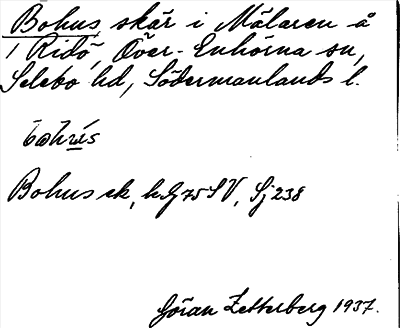 Bohus, skär i Mälaren å
1 Ridö, Över-Enhörna sn,
Selebo hd, Södermanlands l.
Bohus ek, h. G 75 SV, Sj 238
Göran Zetterberg 1937.